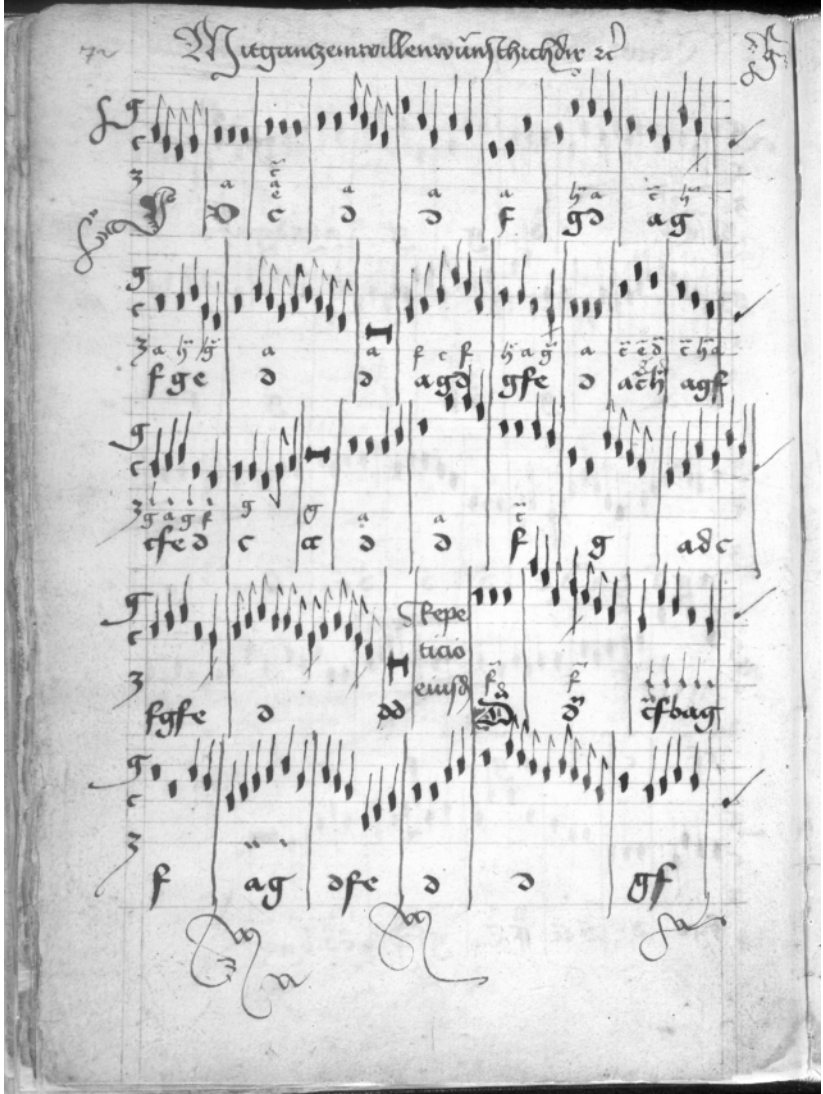 Mit ganczem willen wünsch ich dir ꝛc
g
c
a c a a a h a c h
e
D c d d f gd ag
g
c
a h g a a f c f h a g a c e d c h a
f g e d d agd gfe d ach agf
g
c
g a g f g g a a c
cfed c cc d d f g adc
g
c
Repe
ticio
eiusd
fgfe d dd D d cfbag
g
c
f ag dfe d d gf